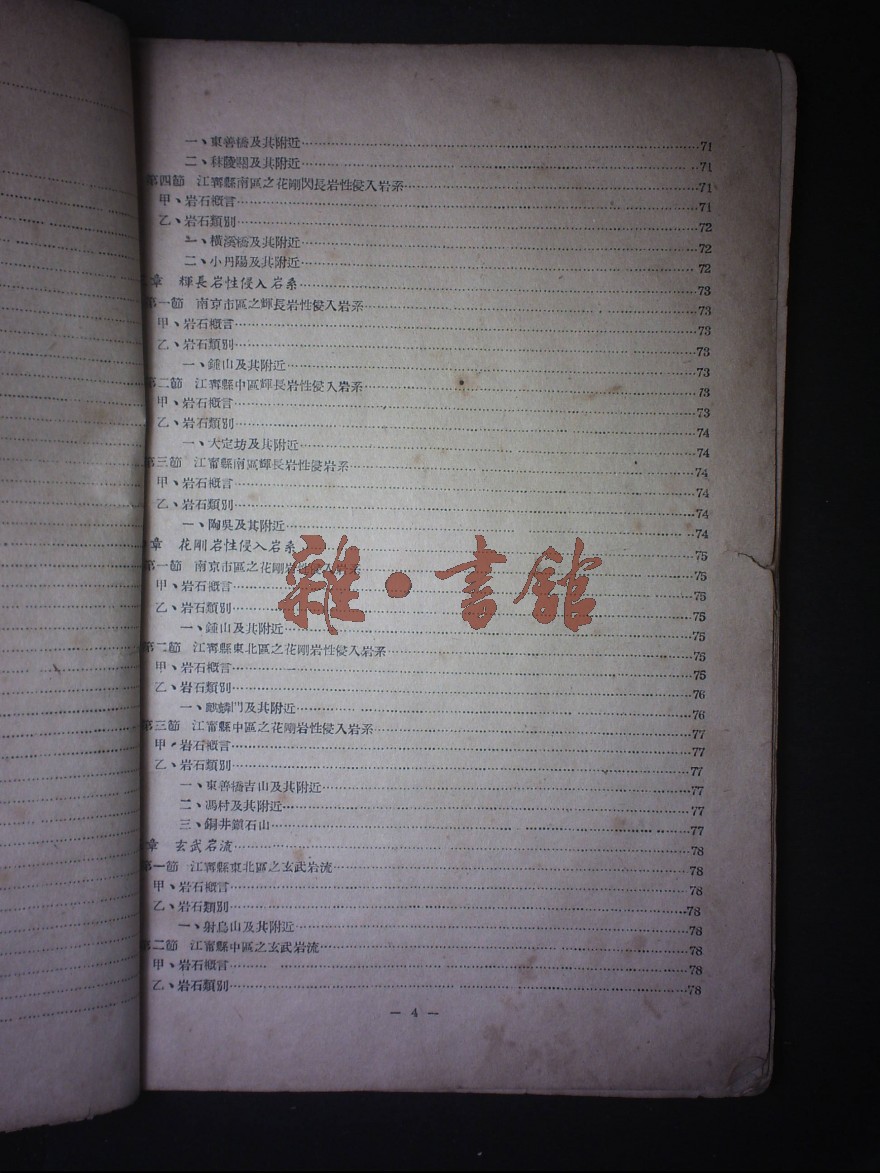 一、東善橋及其附近 71
二、秣陵關及其附近 71
第四節 江寗縣南區之花剛閃長岩性侵入岩系 71
甲、岩石概言 71
乙、岩石類別 72
一、橫溪橋及其附近 72
二、小丹陽及其附近 72
章 輝長岩性侵入岩系 73
第一節 南京市區之輝長岩性侵入岩系 73
甲、岩石概言 73
乙、岩石類別 73
一、鍾山及其附近 73
第二節 江寗縣中區輝長岩性侵入岩系 73
甲、岩石概言 73
乙、岩石類別 74
一、大定坊及其附近 74
第三節 江甯縣南區輝長岩性侵岩系 74
甲、岩石概言 74
乙、岩石類別 74
一、陶吳及其附近 74
章 花剛岩性侵入岩系 75
第一節 南京市區之花剛岩性侵入岩系 75
甲、岩石概言 75
乙、岩石類別 75
一、鍾山及其附近 75
第二節 江寗縣東北區之花剛岩性侵入岩系 75
甲、岩石概言 75
乙、岩石類別 76
一、麒麟門及其附近 76
第三節 江甯縣中區之花剛岩性侵入岩系 77
甲、岩石概言 77
乙、岩石類別 77
一、東善橋吉山及其附近 77
二、馮村及其附近 77
三、銅井鎮石山 77
章 玄武岩流 78
第一節 江寗縣東北區之玄武岩流 78
甲、岩石概言 78
乙、岩石類別 78
一、射烏山及其附近 78
第二節 江甯縣中區之玄武岩流 78
甲、岩石概言 78
乙、岩石類別 78
— 4 —
雜·書館